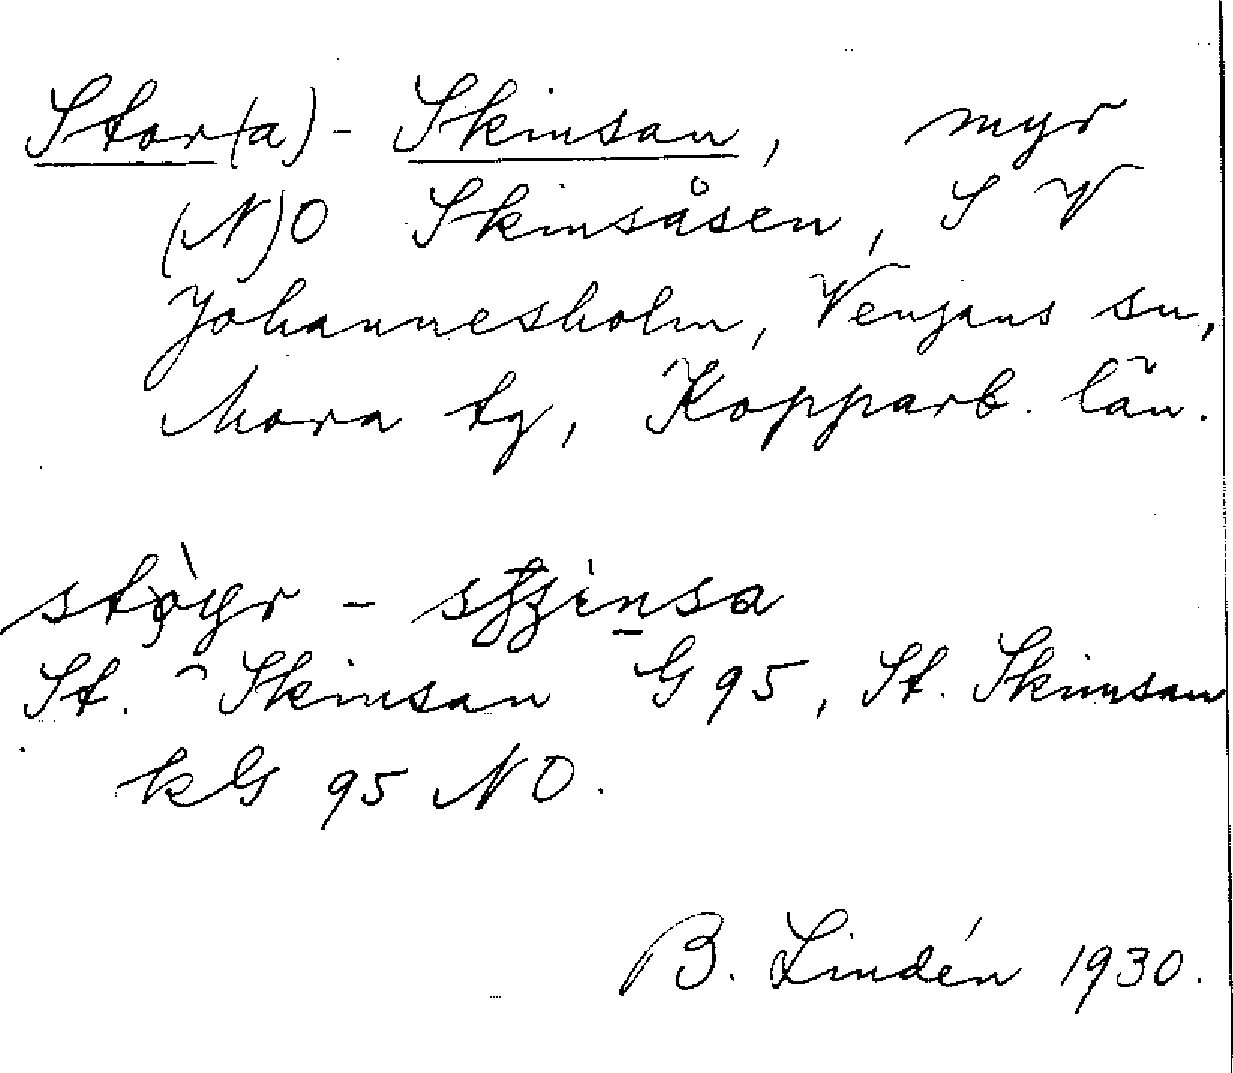 Stor(a)- Skinsan, myr
(N)O Skinsåsen, S V
Johannesholm, Venjans sn,
Mora tg, Kopparb. län.
St. Skinsan G 95, St. Skinnsan
kG 95 NO.
B. Lindén 1930.